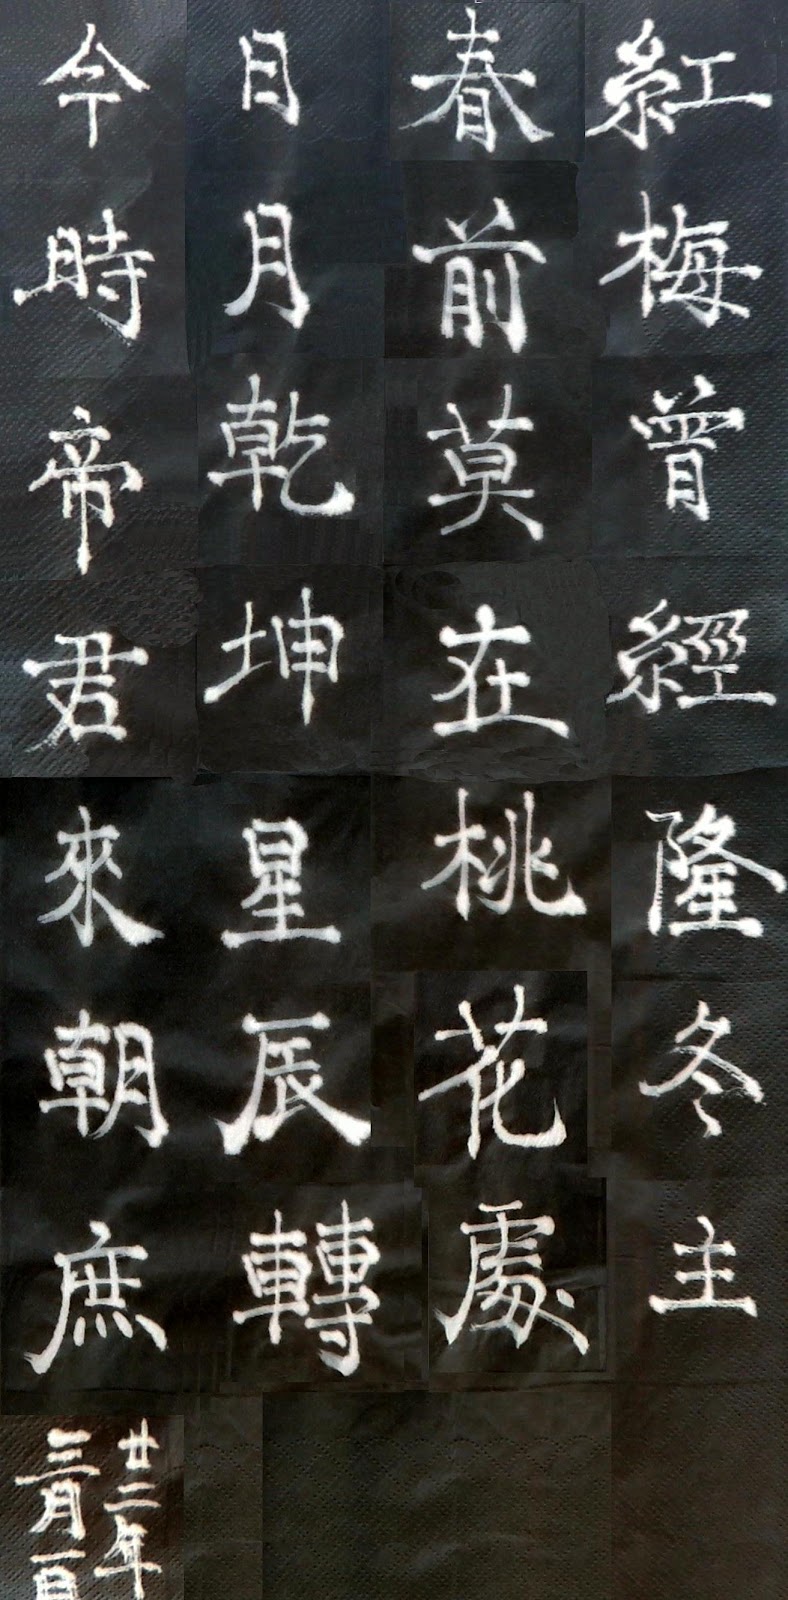 紅梅曾經隆冬主
春前莫在桃花處
日月乾坤星辰轉
今時帝君來朝庶
廿二年
三月一日